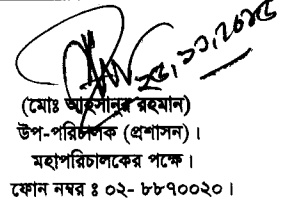 ২৫,১১,২০১৫
(মোঃ আহসানুর রহমান)
উপ-পরিচালক (প্রশাসন)।
মহাপরিচালকের পক্ষে।
ফোন নম্বর ঃ ০২- ৮৮৭০০২০।